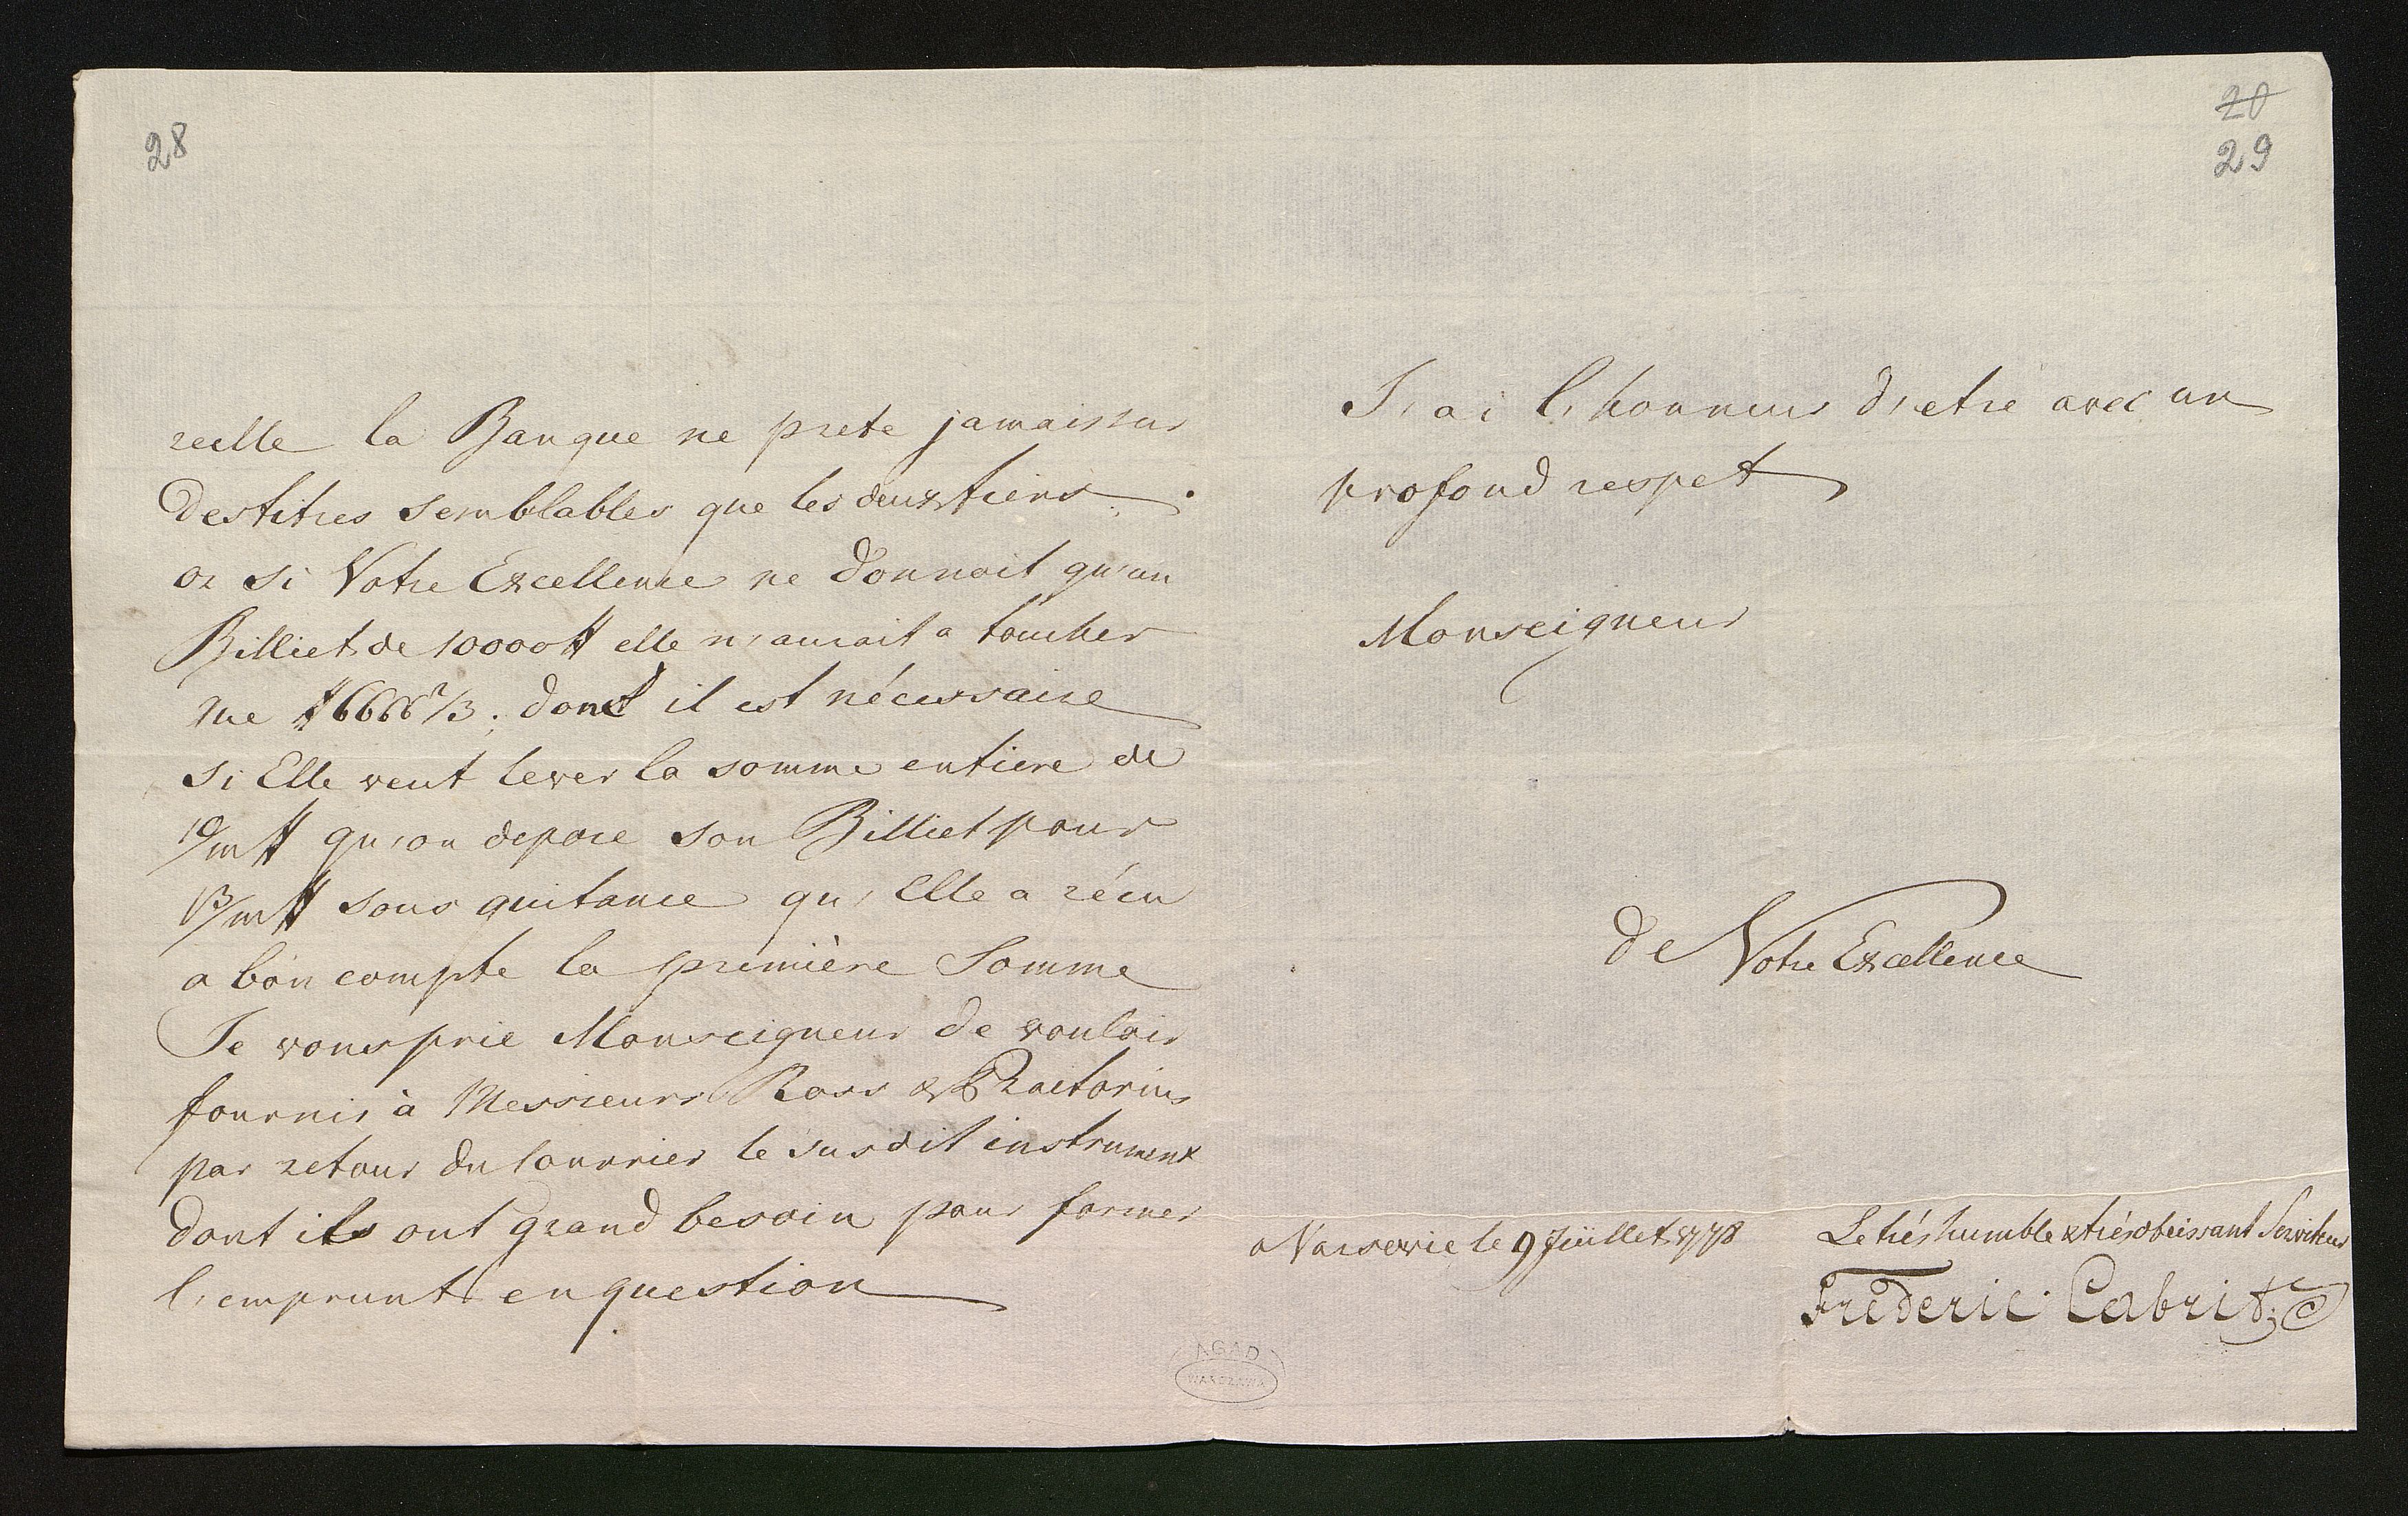 28
reille la Banque ne prete jamais sur
des titres semblables que les deux tiers.
or si Votre Excellence ne donnoit qu'un
Billiet de 10000 # elle n'aurait a toucher
que # 6666 2/3. donc il est nécessaire
si Elle veut lever la somme entiere de
10/m # qu'on depose son Billiet pour
15/m # sous quitance qu'Elle a récu
a bon compte la première Somme
Je vous prie Monseigneur de vouloir
fournir à Messieurs Ross & Praetorius
par retour du Courrier le susdit instrument
dont ils ont grand besoin pour former
l'emprunt en question
20
29
J'ai l'honneur d'etre avec un
profond respet
Monseigneur
de Votre Excellence
a Varsovie le 9 Juillet 1778
Le trés humble & trés obeissant Serviteur
Fréderic Cabrit
AGAD
WARSZAWA